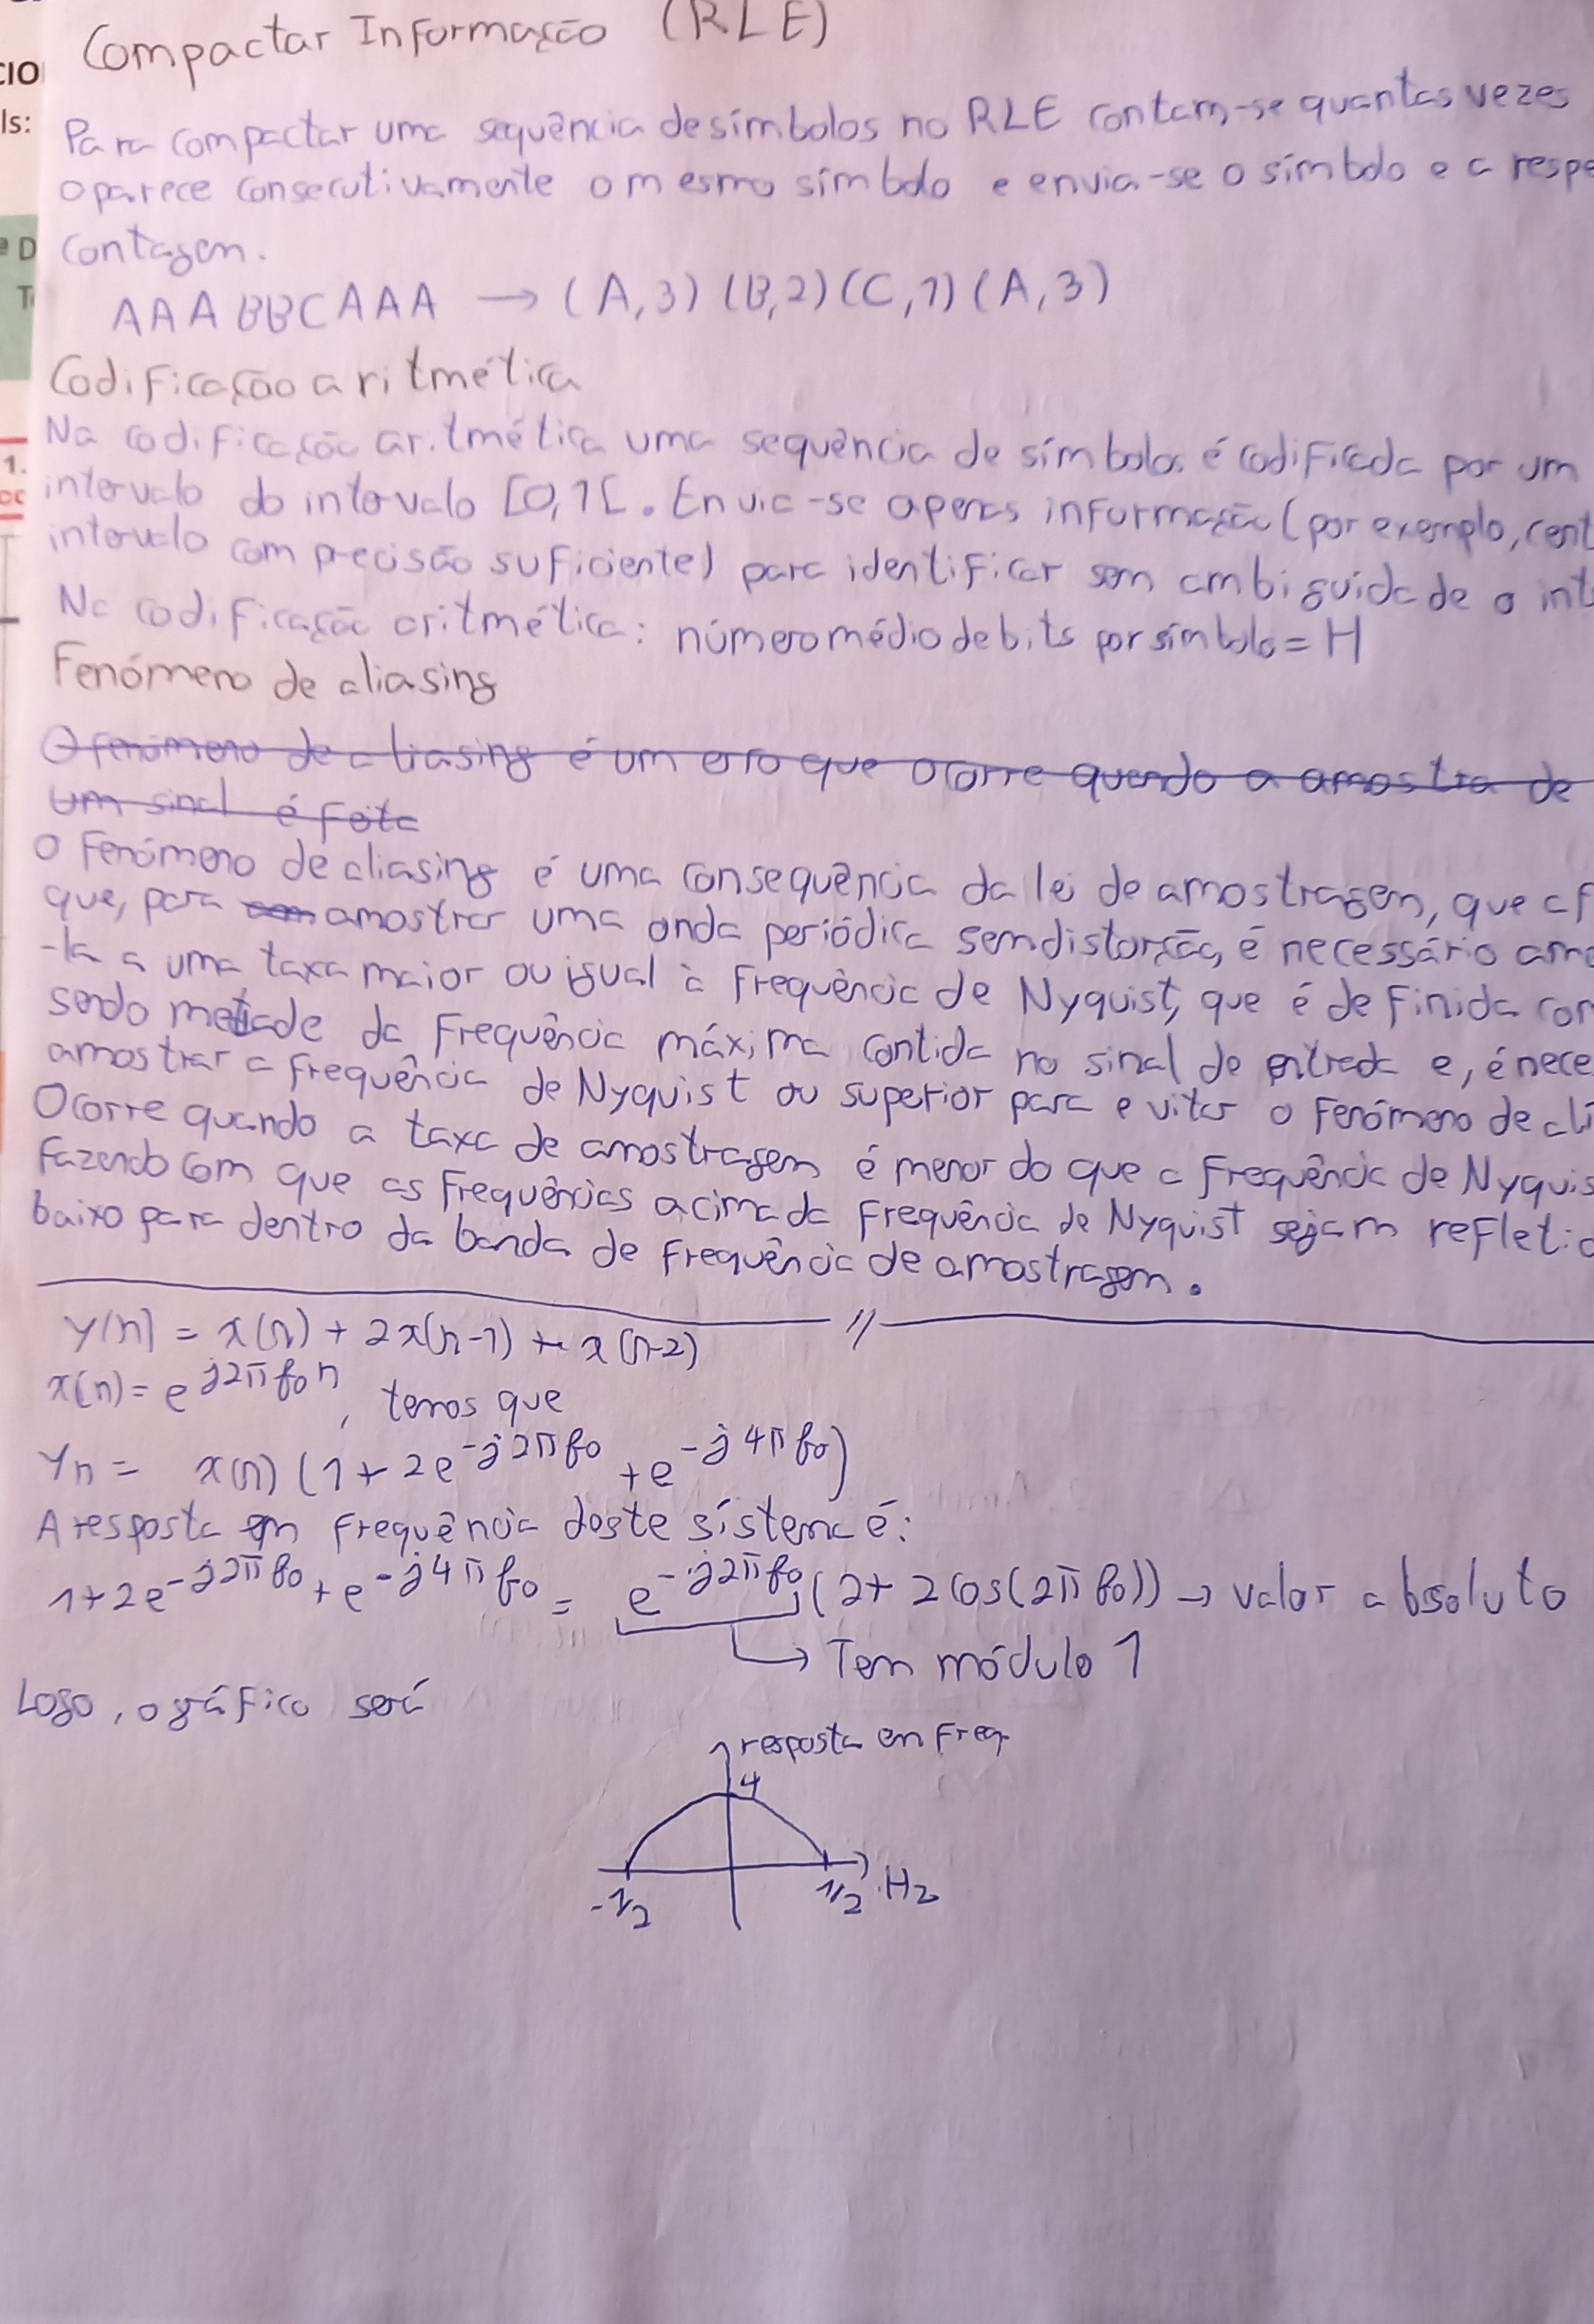 Compactar Informação (RLE)
CIO
ls:
Para compactar uma sequência de símbolos no RLE contam-se quantas vezes
aparece consecutivamente o mesmo símbolo e envia-se o símbolo e a respe
contagem.
ª D
AAABBCAAA → (A,3) (B,2) (C,1) (A,3)
Codificação aritmética
Na codificação aritmética uma sequência de símbolos é codificada por um
1.
intervalo do intervalo [0,1[. Envia-se apenas informação (por exemplo, cent
intervalo com precisão suficiente) para identificar sem ambiguidade o int
Na codificação aritmética: número médio de bits por símbolo = H
Fenómeno de aliasing
O fenómeno de aliasing é um erro que ocorre quando a amostra de
um sinal é feita
O fenómeno de aliasing é uma consequência da lei de amostragem, que af
que, para amostrar uma onda periódica sem distorção, é necessário amo
-la a uma taxa maior ou igual à frequência de Nyquist, que é definida com
sendo metade da frequência máxima contida no sinal de entrada e, é nece
amostrar a frequência de Nyquist ou superior para evitar o fenómeno de ali
Ocorre quando a taxa de amostragem é menor do que a frequência de Nyquis
fazendo com que as frequências acima da frequência de Nyquist sejam refletid
baixo para dentro da banda de frequência de amostragem.
y(n) = x(n) + 2x(n-1) + x(n-2)
x(n) = e^j2πf₀n, temos que
Yn = x(n) (1 + 2e^-j2πf₀ + e^-j4πf₀)
A resposta em frequência deste sistema é:
1+2e^-j2πf₀ + e^-j4πf₀ = e^-j2πf₀ (2 + 2cos(2πf₀)) → valor absoluto
→ Tem módulo 1
Logo, o gráfico será
resposta em freq.
4
-1/2
1/2 Hz